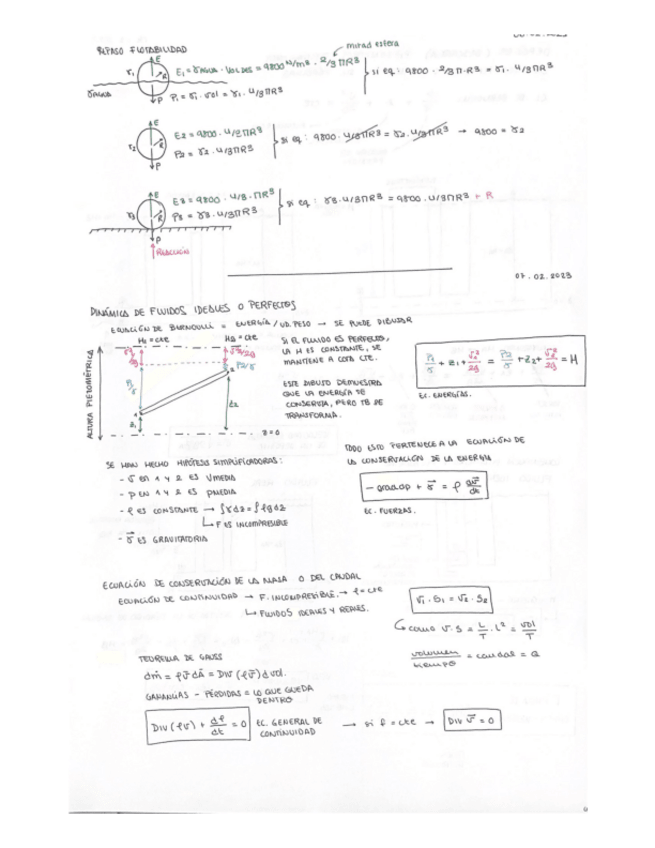 REPASO FLOTABILIDAD
mitad esfera
E₁ = γAGUA · VOL DES = 9800 N/m³ · 2/3 ΠR³
P₁ = γ₁ · vol = γ₁ · 4/3ΠR³
si eq: 9800 · 2/3 Π·R³ = γ₁ · 4/3ΠR³
γ₁
E
R
P
γAGUA
E₂ = 9800 · 4/3ΠR³
P₂ = γ₂ · 4/3ΠR³
si eq: 9800 · 4/3ΠR³ = γ₂ · 4/3ΠR³ → 9800 = γ₂
γ₂
E
R
P
E₃ = 9800 · 4/3 · ΠR³
P₃ = γ₃ · 4/3ΠR³
si eq: γ₃ · 4/3ΠR³ = 9800 · 4/3ΠR³ + R
γ₃
E
R
P
REACCIÓN
07.02.2023
DINÁMICA DE FLUIDOS IDEALES O PERFECTOS
ECUACIÓN DE BERNOULLI = ENERGÍA/UD. PESO → SE PUEDE DIBUJAR
H₁ = cte
H₂ = cte
ALTURA PIEZOMÉTRICA
V₂²/2g
P₂/γ
P₁/γ
1
2
z₁
z₂
z = 0
SI EL FLUIDO ES PERFECTO,
LA H ES CONSTANTE, SE
MANTIENE A COTA CTE.
ESTE DIBUJO DEMUESTRA
QUE LA ENERGÍA SE
CONSERVA, PERO TB SE
TRANSFORMA.
P₁/γ + z₁ + V₁²/2g = P₂/γ + z₂ + V₂²/2g = H
EC. ENERGÍAS.
SE HAN HECHO HIPÓTESIS SIMPLIFICADORAS:
- V EN 1 Y 2 ES VMEDIA
- P EN 1 Y 2 ES PMEDIA
- ρ ES CONSTANTE → ∫γdz = ∫ρgdz
↳ F ES INCOMPRESIBLE
- γ⃗ ES GRAVITATORIA
TODO ESTO PERTENECE A LA ECUACIÓN DE
LA CONSERVACIÓN DE LA ENERGÍA
- grad.p + γ⃗ = ρ dv⃗/dt
EC. FUERZAS.
ECUACIÓN DE CONSERVACIÓN DE LA MASA O DEL CAUDAL
ECUACIÓN DE CONTINUIDAD → F. INCOMPRESIBLE. → ρ = cte
↳ FLUIDOS IDEALES Y REALES.
V₁ · S₁ = V₂ · S₂
↳ como V · S = L/T · L² = VOl/T
volumen/tiempo = caudal = Q
TEOREMA DE GAUSS
dṁ = ρv⃗ dA⃗ = DIV (ρv⃗) dvol.
GANANCIAS - PÉRDIDAS = LO QUE QUEDA
DENTRO
DIV (ρv) + dρ/dt = 0
EC. GENERAL DE
CONTINUIDAD
→ si ρ = cte → DIV v⃗ = 0